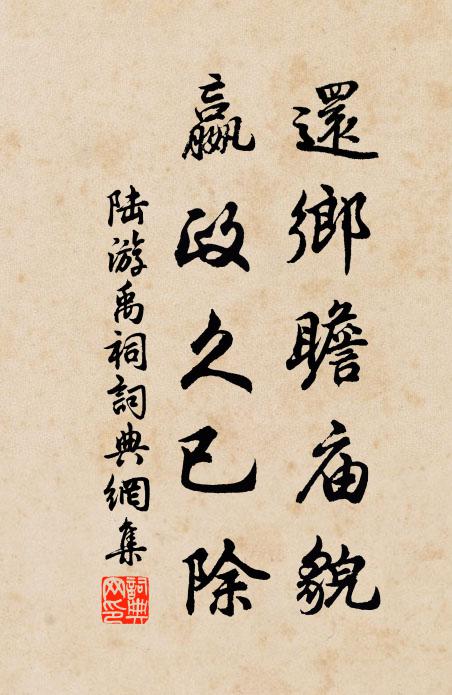 還鄉瞻庙貌
嬴政久已除
陆游禹祠詞典網集
詞典网印